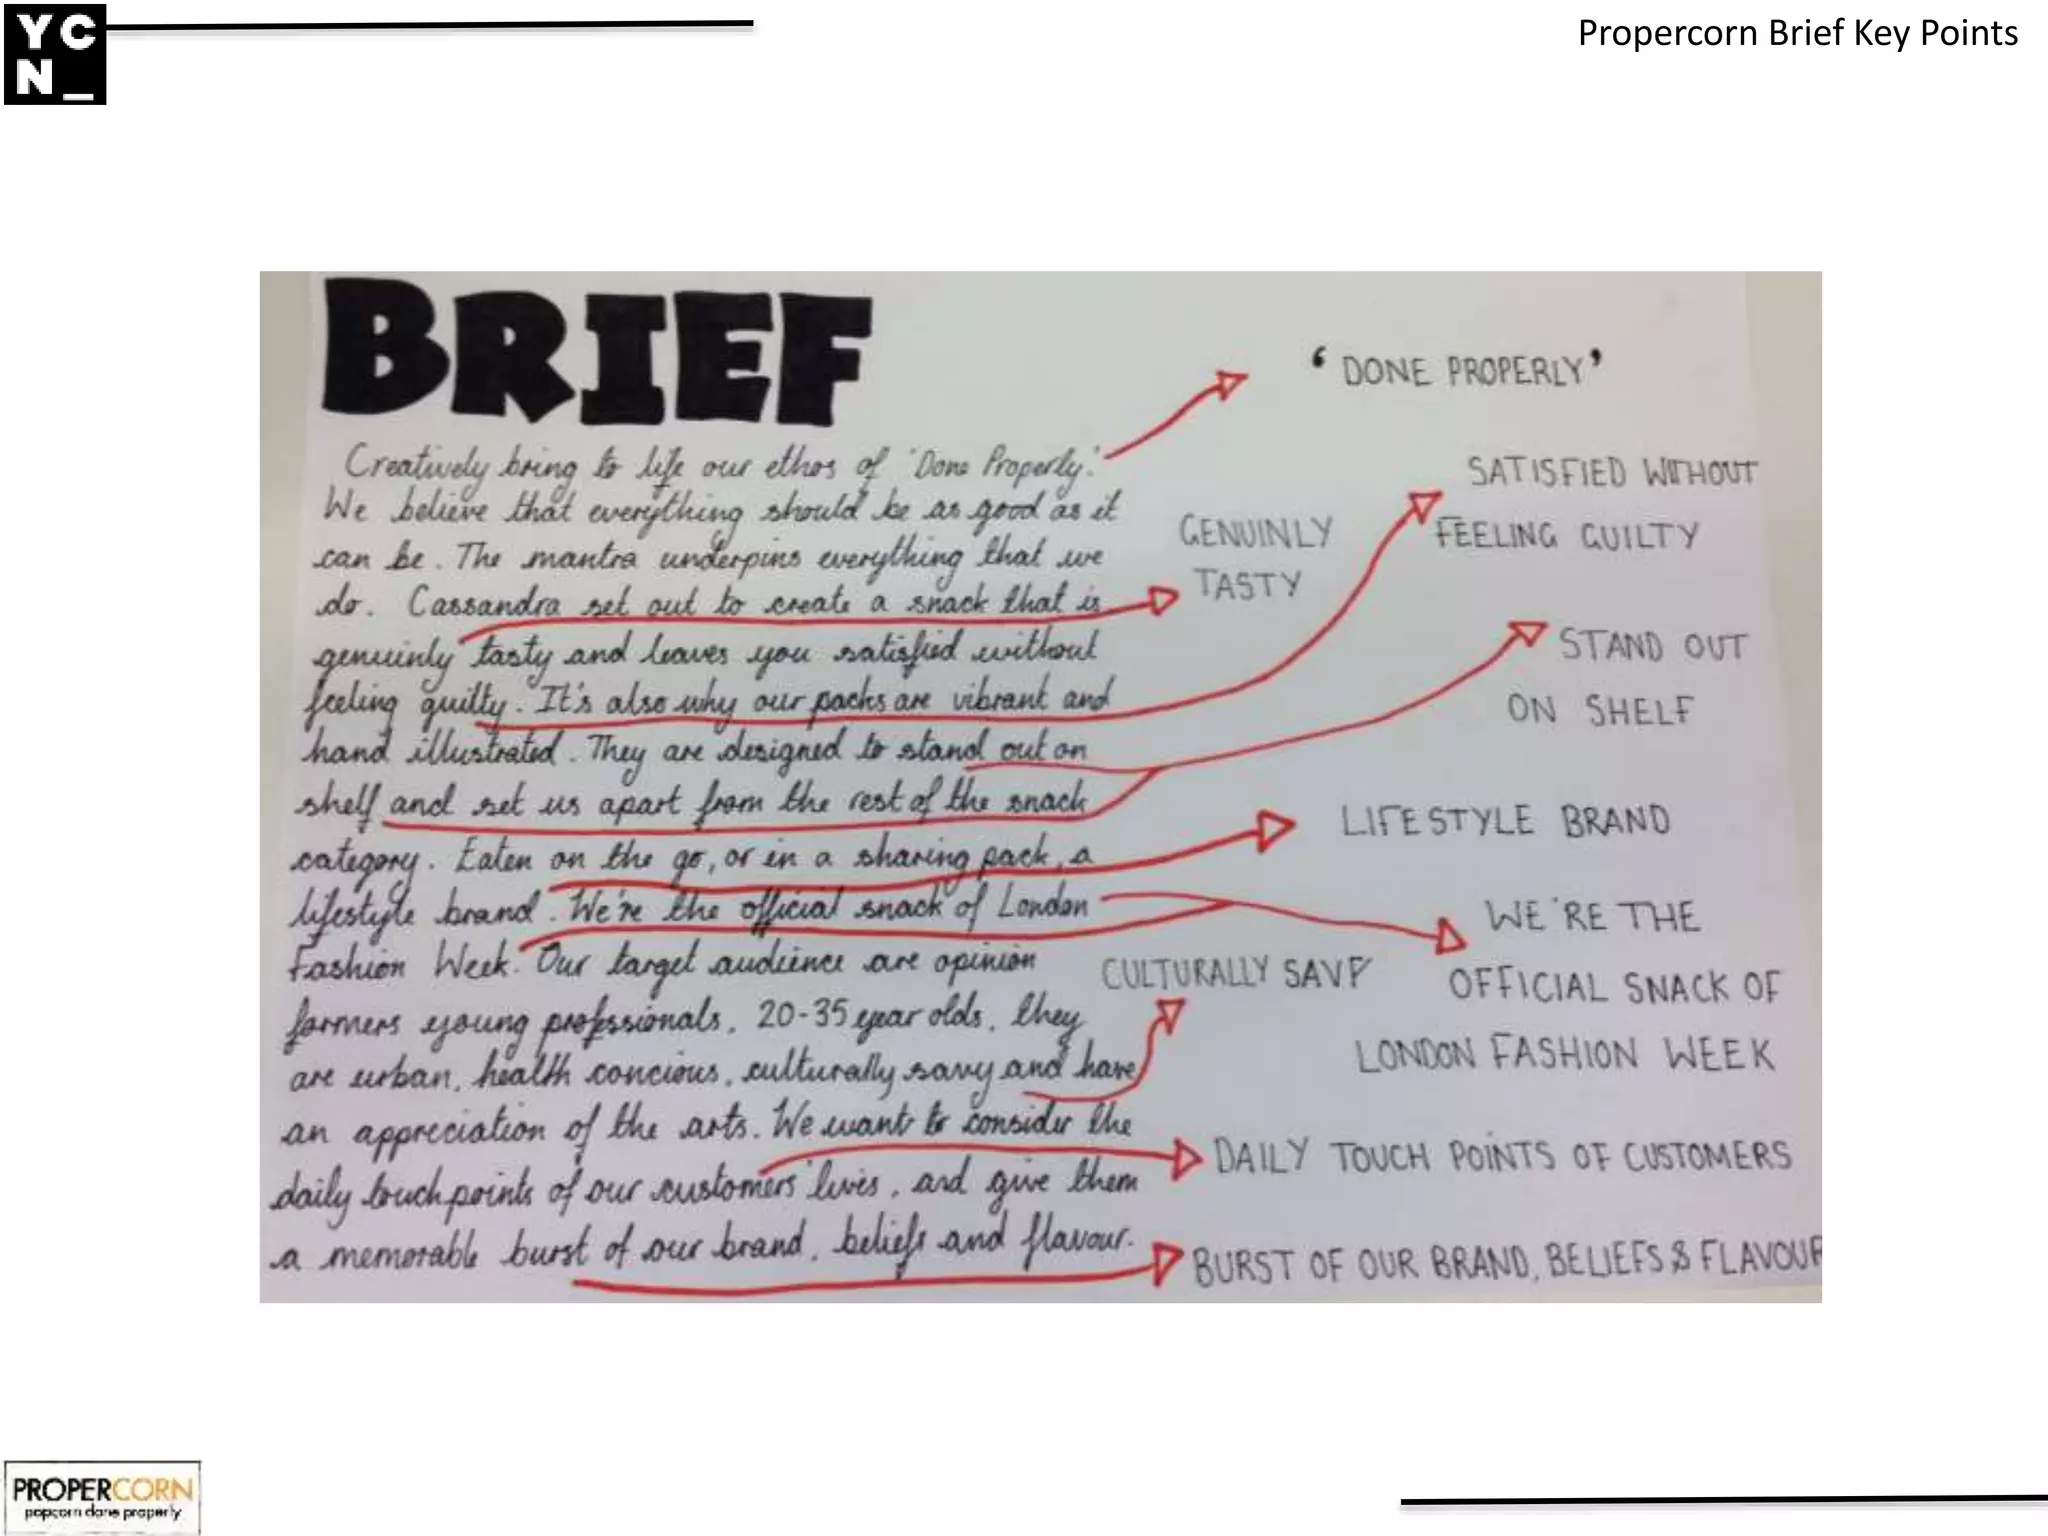 YC
N_
Propercorn Brief Key Points
BRIEF
Creatively bring to life our ethos of 'Done Properly'.
We believe that everything should be as good as it
can be. The mantra underpins everything that we
do. Cassandra set out to create a snack that is
genuinly tasty and leaves you satisfied without
feeling guilty. It's also why our packs are vibrant and
hand illustrated. They are designed to stand out on
shelf and set us apart from the rest of the snack
category. Eaten on the go, or in a sharing pack, a
lifestyle brand. We're the official snack of London
Fashion Week. Our target audience are opinion
formers young professionals, 20-35 year olds, they
are urban, health concious, culturally savy and have
an appreciation of the arts. We want to consider the
daily touch points of our customers' lives, and give them
a memorable burst of our brand, beliefs and flavour.
'DONE PROPERLY'
SATISFIED WITHOUT
FEELING GUILTY
GENUINLY
TASTY
STAND OUT
ON SHELF
LIFESTYLE BRAND
WE'RE THE
OFFICIAL SNACK OF
LONDON FASHION WEEK
CULTURALLY SAVY
DAILY TOUCH POINTS OF CUSTOMERS
BURST OF OUR BRAND, BELIEFS & FLAVOUR
PROPERCORN
popcorn done properly